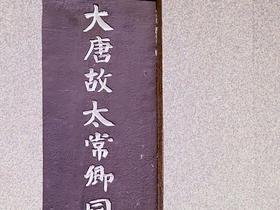 大唐故太常卿